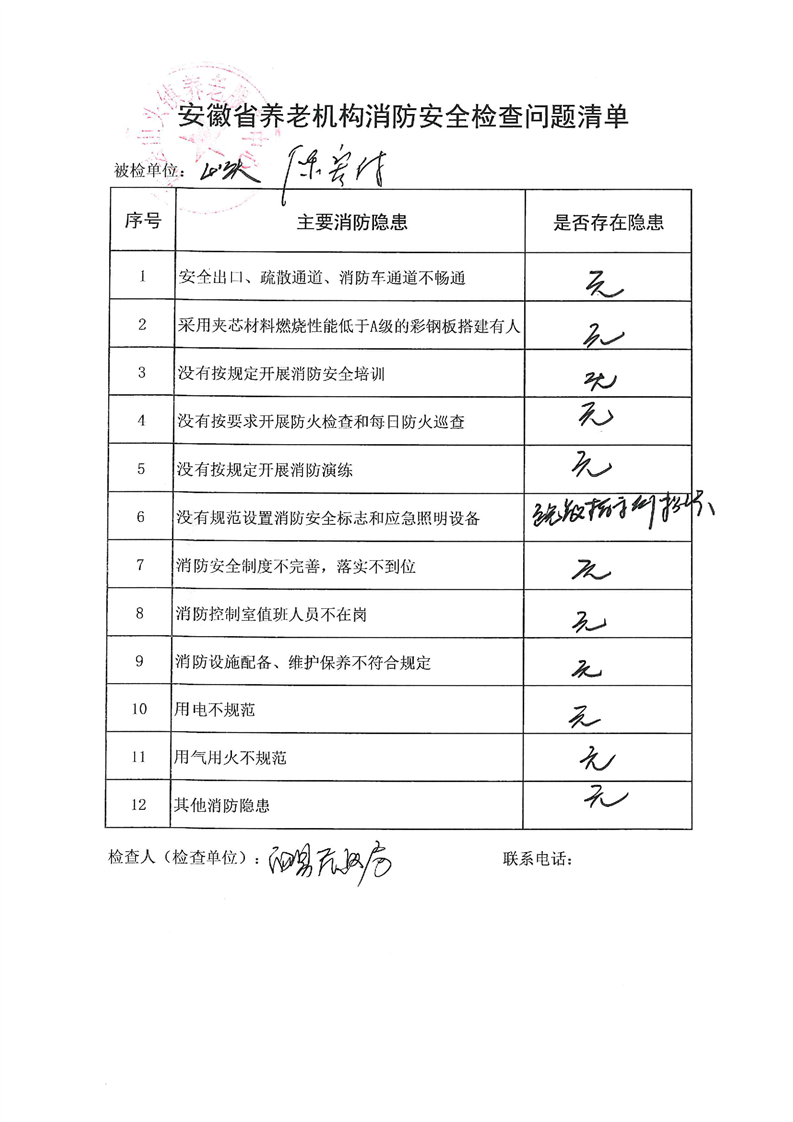 安徽省养老机构消防安全检查问题清单
被检单位： 山头
序号 主要消防隐患 是否存在隐患
1 安全出口、疏散通道、消防车通道不畅通 无
2 采用夹芯材料燃烧性能低于A级的彩钢板搭建有人 无
3 没有按规定开展消防安全培训 无
4 没有按要求开展防火检查和每日防火巡查 无
5 没有按规定开展消防演练 无
6 没有规范设置消防安全标志和应急照明设备 疏散指示
7 消防安全制度不完善，落实不到位 无
8 消防控制室值班人员不在岗 无
9 消防设施配备、维护保养不符合规定 无
10 用电不规范 无
11 用气用火不规范 无
12 其他消防隐患 无
检查人（检查单位）：泗县民政局 联系电话：